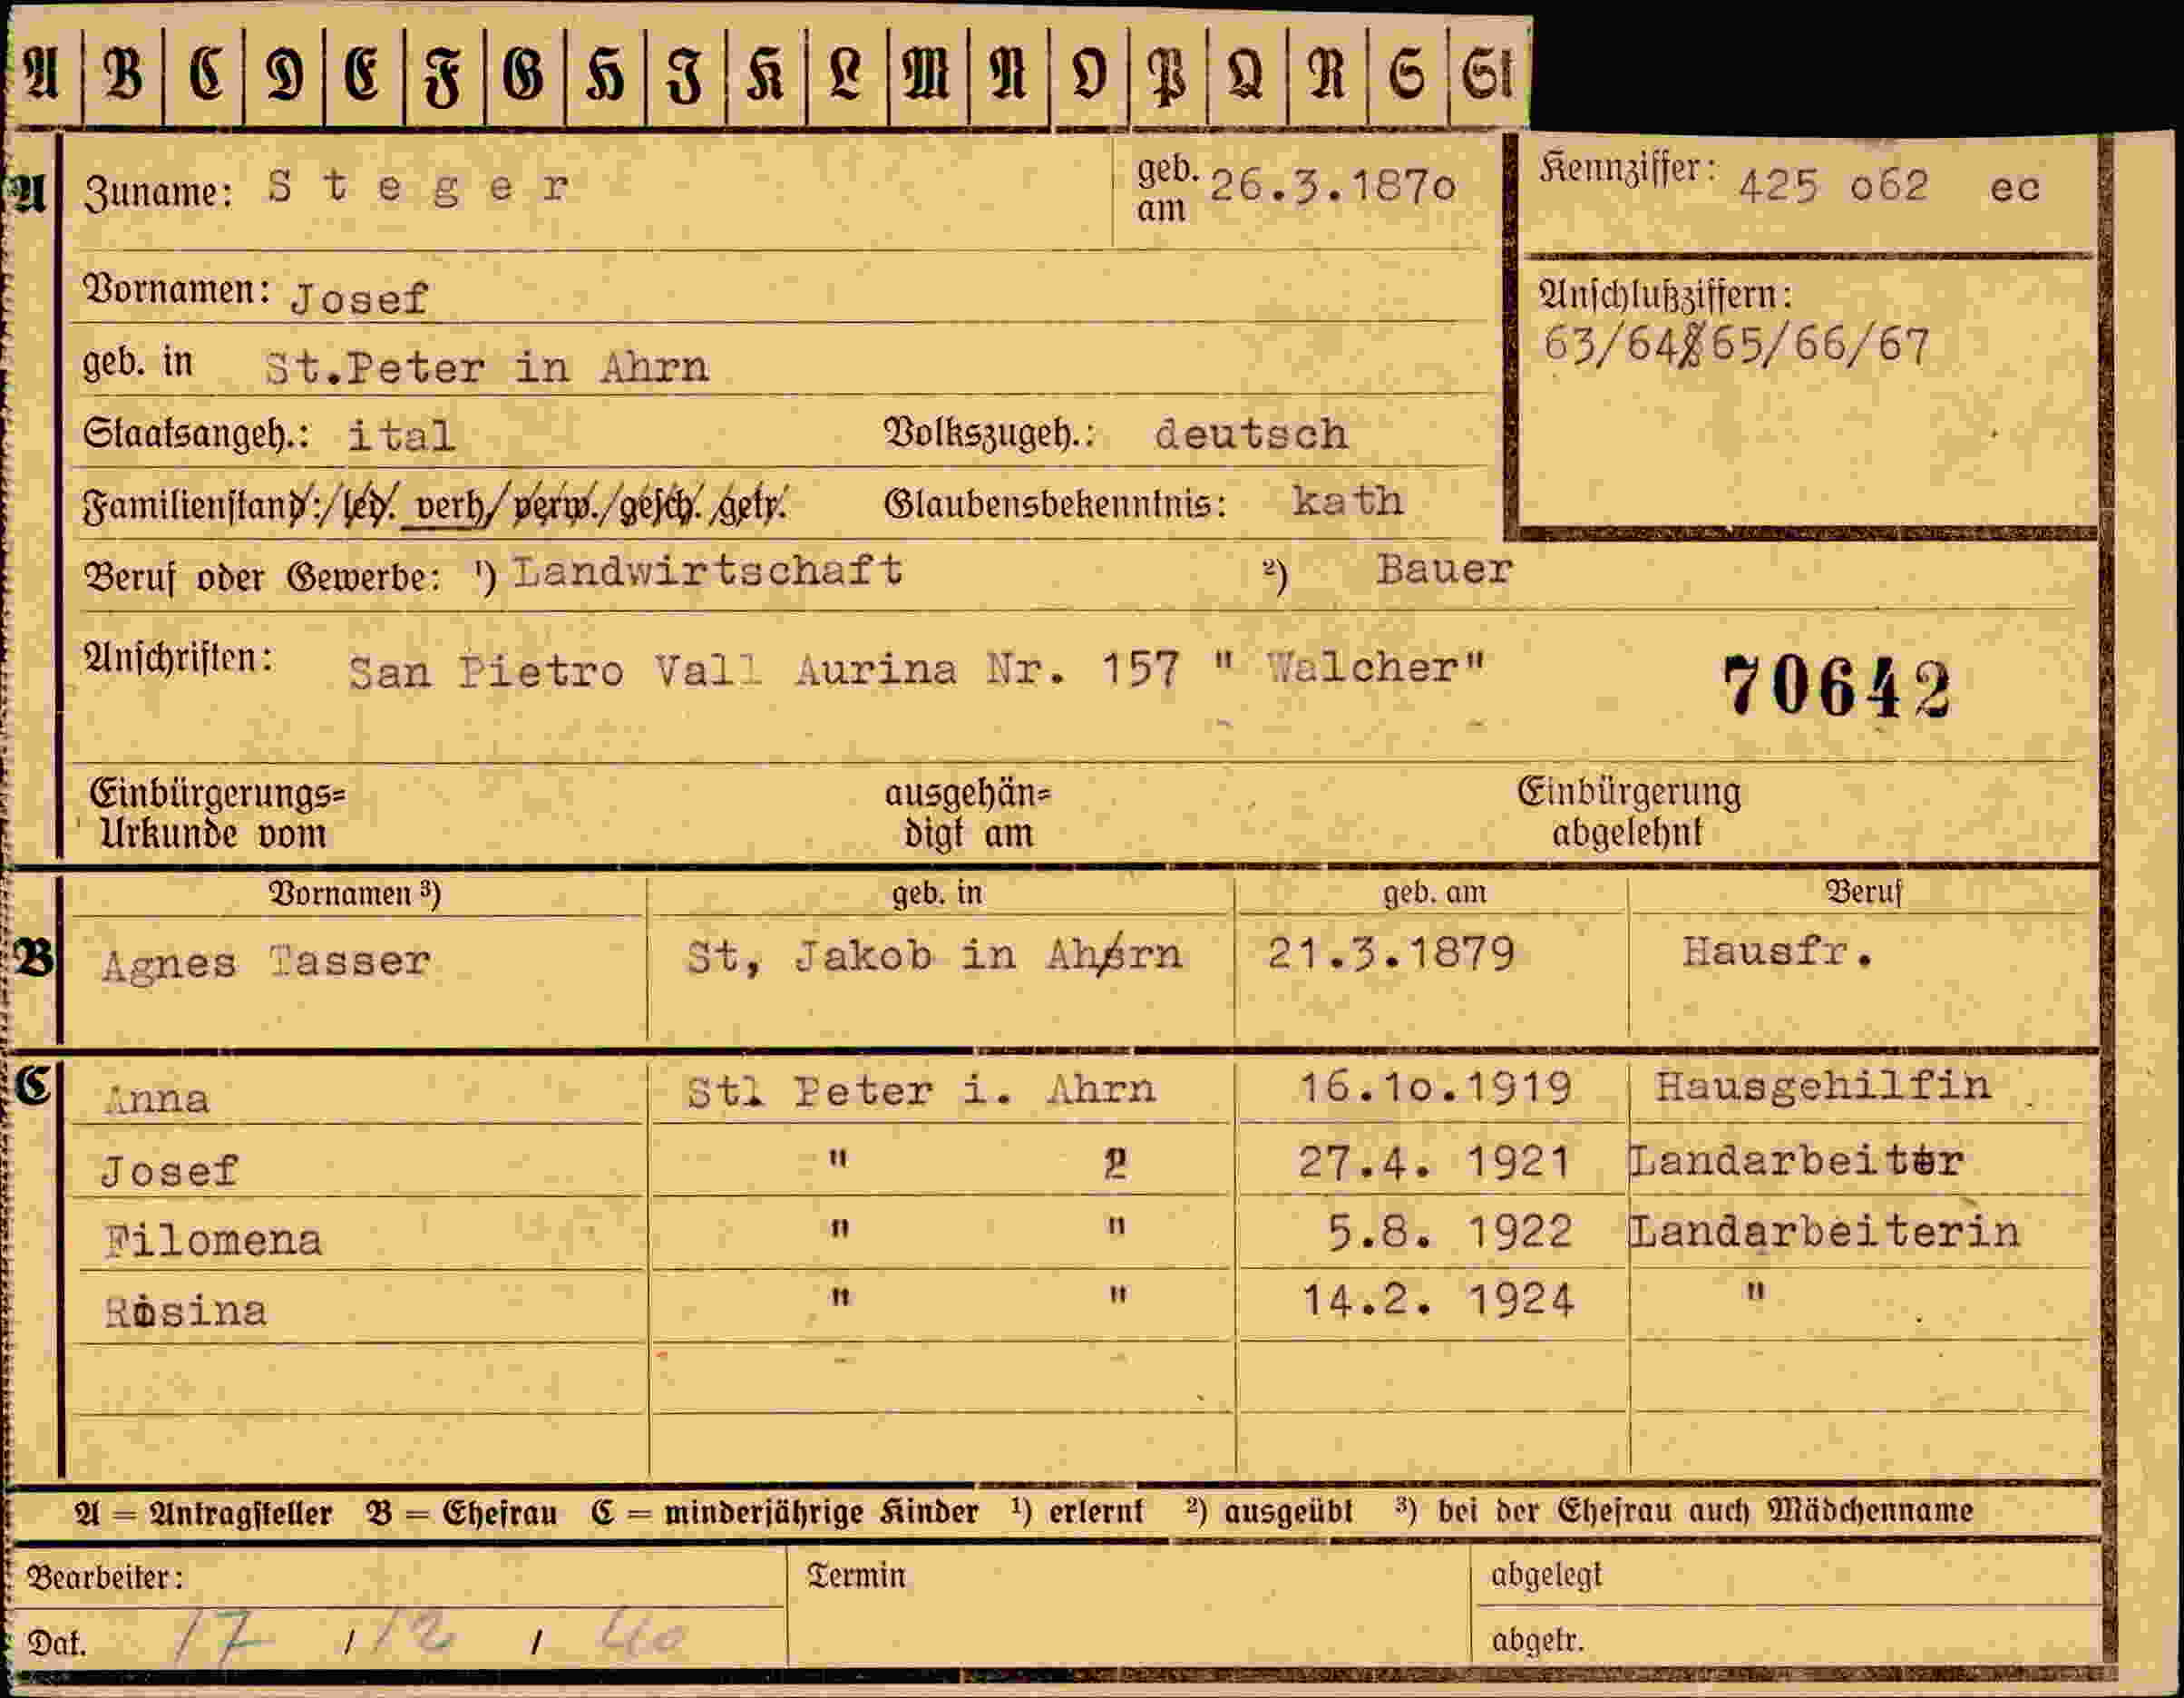 A B C D E F G H J K L M N O P Q R S St
A Zuname: S t e g e r geb. am 26.3.187o Kennziffer: 425 o62 ec
Vornamen: Josef
Anschlußziffern:
63/64/65/66/67
geb. in St.Peter in Ahrn
Staatsangeh.: ital Volkszugeh.: deutsch
Familienstand:/led. verh/verw./gesch./getr. Glaubensbekenntnis: kath
Beruf oder Gewerbe: ¹) Landwirtschaft ²) Bauer
Anschriften: San Pietro Vall Aurina Nr. 157 " Walcher" 70642
Einbürgerungs= ausgehän= Einbürgerung
Urkunde vom digt am abgelehnt
Vornamen ³) geb. in geb. am Beruf
B Agnes Tasser St, Jakob in Ahrn 21.3.1879 Hausfr.
C Anna Stl Peter i. Ahrn 16.1o.1919 Hausgehilfin
Josef " 2 27.4. 1921 Landarbeiter
Filomena " " 5.8. 1922 Landarbeiterin
Rosina " " 14.2. 1924 "
A = Antragsteller B = Ehefrau C = minderjährige Kinder ¹) erlernt ²) ausgeübt ³) bei der Ehefrau auch Mädchenname
Bearbeiter: Termin abgelegt
Dat. 17 / 12 / 40 abgetr.